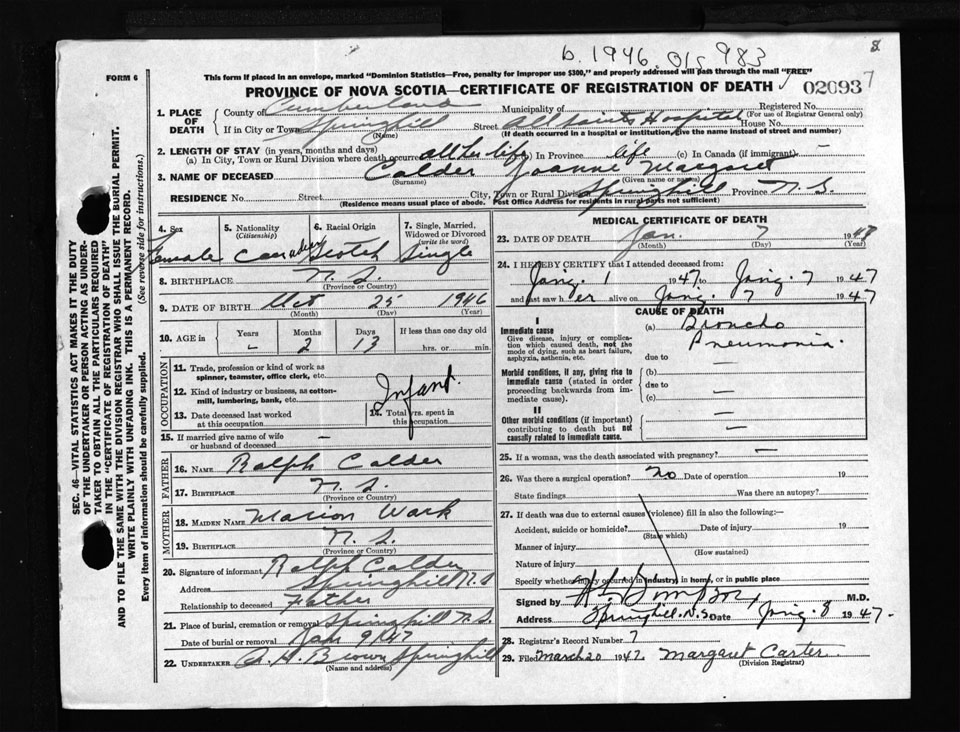 8
b. 1946. 983
FORM 6
This form if placed in an envelope, marked "Dominion Statistics—Free, penalty for improper use $300," and properly addressed will pass through the mail "FREE"
PROVINCE OF NOVA SCOTIA—CERTIFICATE OF REGISTRATION OF DEATH
02093 7
1. PLACE OF DEATH
County of Cumberland Municipality of Registered No.
(For use of Registrar General only)
If in City or Town Springhill Street All Saints Hospital House No.
(Name) (If death occurred in a hospital or institution, give the name instead of street and number)
2. LENGTH OF STAY (in years, months and days)
(a) In City, Town or Rural Division where death occurred all her life (b) In Province life (c) In Canada (if immigrant) —
3. NAME OF DECEASED Calder Joanne Margaret
(Surname) (Given name or names)
RESIDENCE No. Street City, Town or Rural Division Springhill Province N. S.
(Residence means usual place of abode. Post Office Address for residents in rural parts not sufficient)
4. Sex Female
5. Nationality (Citizenship) Canadian
6. Racial Origin Scotch
7. Single, Married, Widowed or Divorced (write the word) Single
8. BIRTHPLACE N. S.
(Province or Country)
9. DATE OF BIRTH Oct 25 1946
(Month) (Day) (Year)
10. AGE in Years – Months 2 Days 13 If less than one day old hrs. or min.
OCCUPATION
11. Trade, profession or kind of work as spinner, teamster, office clerk, etc.
12. Kind of industry or business, as cotton-mill, lumbering, bank, etc.
Infant.
13. Date deceased last worked at this occupation
14. Total yrs. spent in this occupation
15. If married give name of wife or husband of deceased —
FATHER
16. NAME Ralph Calder
17. BIRTHPLACE N. S.
(Province or Country)
MOTHER
18. MAIDEN NAME Marion Wark
19. BIRTHPLACE N. S.
(Province or Country)
20. Signature of informant Ralph Calder
Address Springhill N. S
Relationship to deceased Father
21. Place of burial, cremation or removal Springhill N. S.
Date of burial or removal Jan 9/47
22. UNDERTAKER A. H. Brown Springhill
(Name and address)
MEDICAL CERTIFICATE OF DEATH
23. DATE OF DEATH Jan. 7 1947
(Month) (Day) (Year)
24. I HEREBY CERTIFY that I attended deceased from:
Jany. 1 1947, to Jany. 7 1947
and last saw her alive on Jany. 7 1947
CAUSE OF DEATH
I
Immediate cause
Give disease, injury or complication which caused death, not the mode of dying, such as heart failure, asphyxia, asthenia, etc.
(a) Broncho Pneumonia.
due to —
Morbid conditions, if any, giving rise to immediate cause (stated in order proceeding backwards from immediate cause).
(b)
due to —
(c) —
II
Other morbid conditions (if important) contributing to death but not causally related to immediate cause.
—
25. If a woman, was the death associated with pregnancy? —
26. Was there a surgical operation? no Date of operation 19
State findings Was there an autopsy?
27. If death was due to external causes (violence) fill in also the following:—
Accident, suicide or homicide? Date of injury 19
(State which)
Manner of injury
(How sustained)
Nature of injury
Specify whether injury occurred in industry, in home, or in public place
Signed by M.D.
Address Springhill. N. S. Date Jany. 8 1947.
28. Registrar's Record Number 7
29. Filed March 20 1947. Margaret Carter
(Division Registrar)
SEC. 46—VITAL STATISTICS ACT MAKES IT THE DUTY
OF THE UNDERTAKER OR PERSON ACTING AS UNDERTAKER TO OBTAIN ALL THE PARTICULARS REQUIRED
IN THE "CERTIFICATE OF REGISTRATION OF DEATH"
AND TO FILE THE SAME WITH THE DIVISION REGISTRAR WHO SHALL ISSUE THE BURIAL PERMIT.
WRITE PLAINLY WITH UNFADING INK. THIS IS A PERMANENT RECORD.
Every item of information should be carefully supplied. (See reverse side for instructions.)